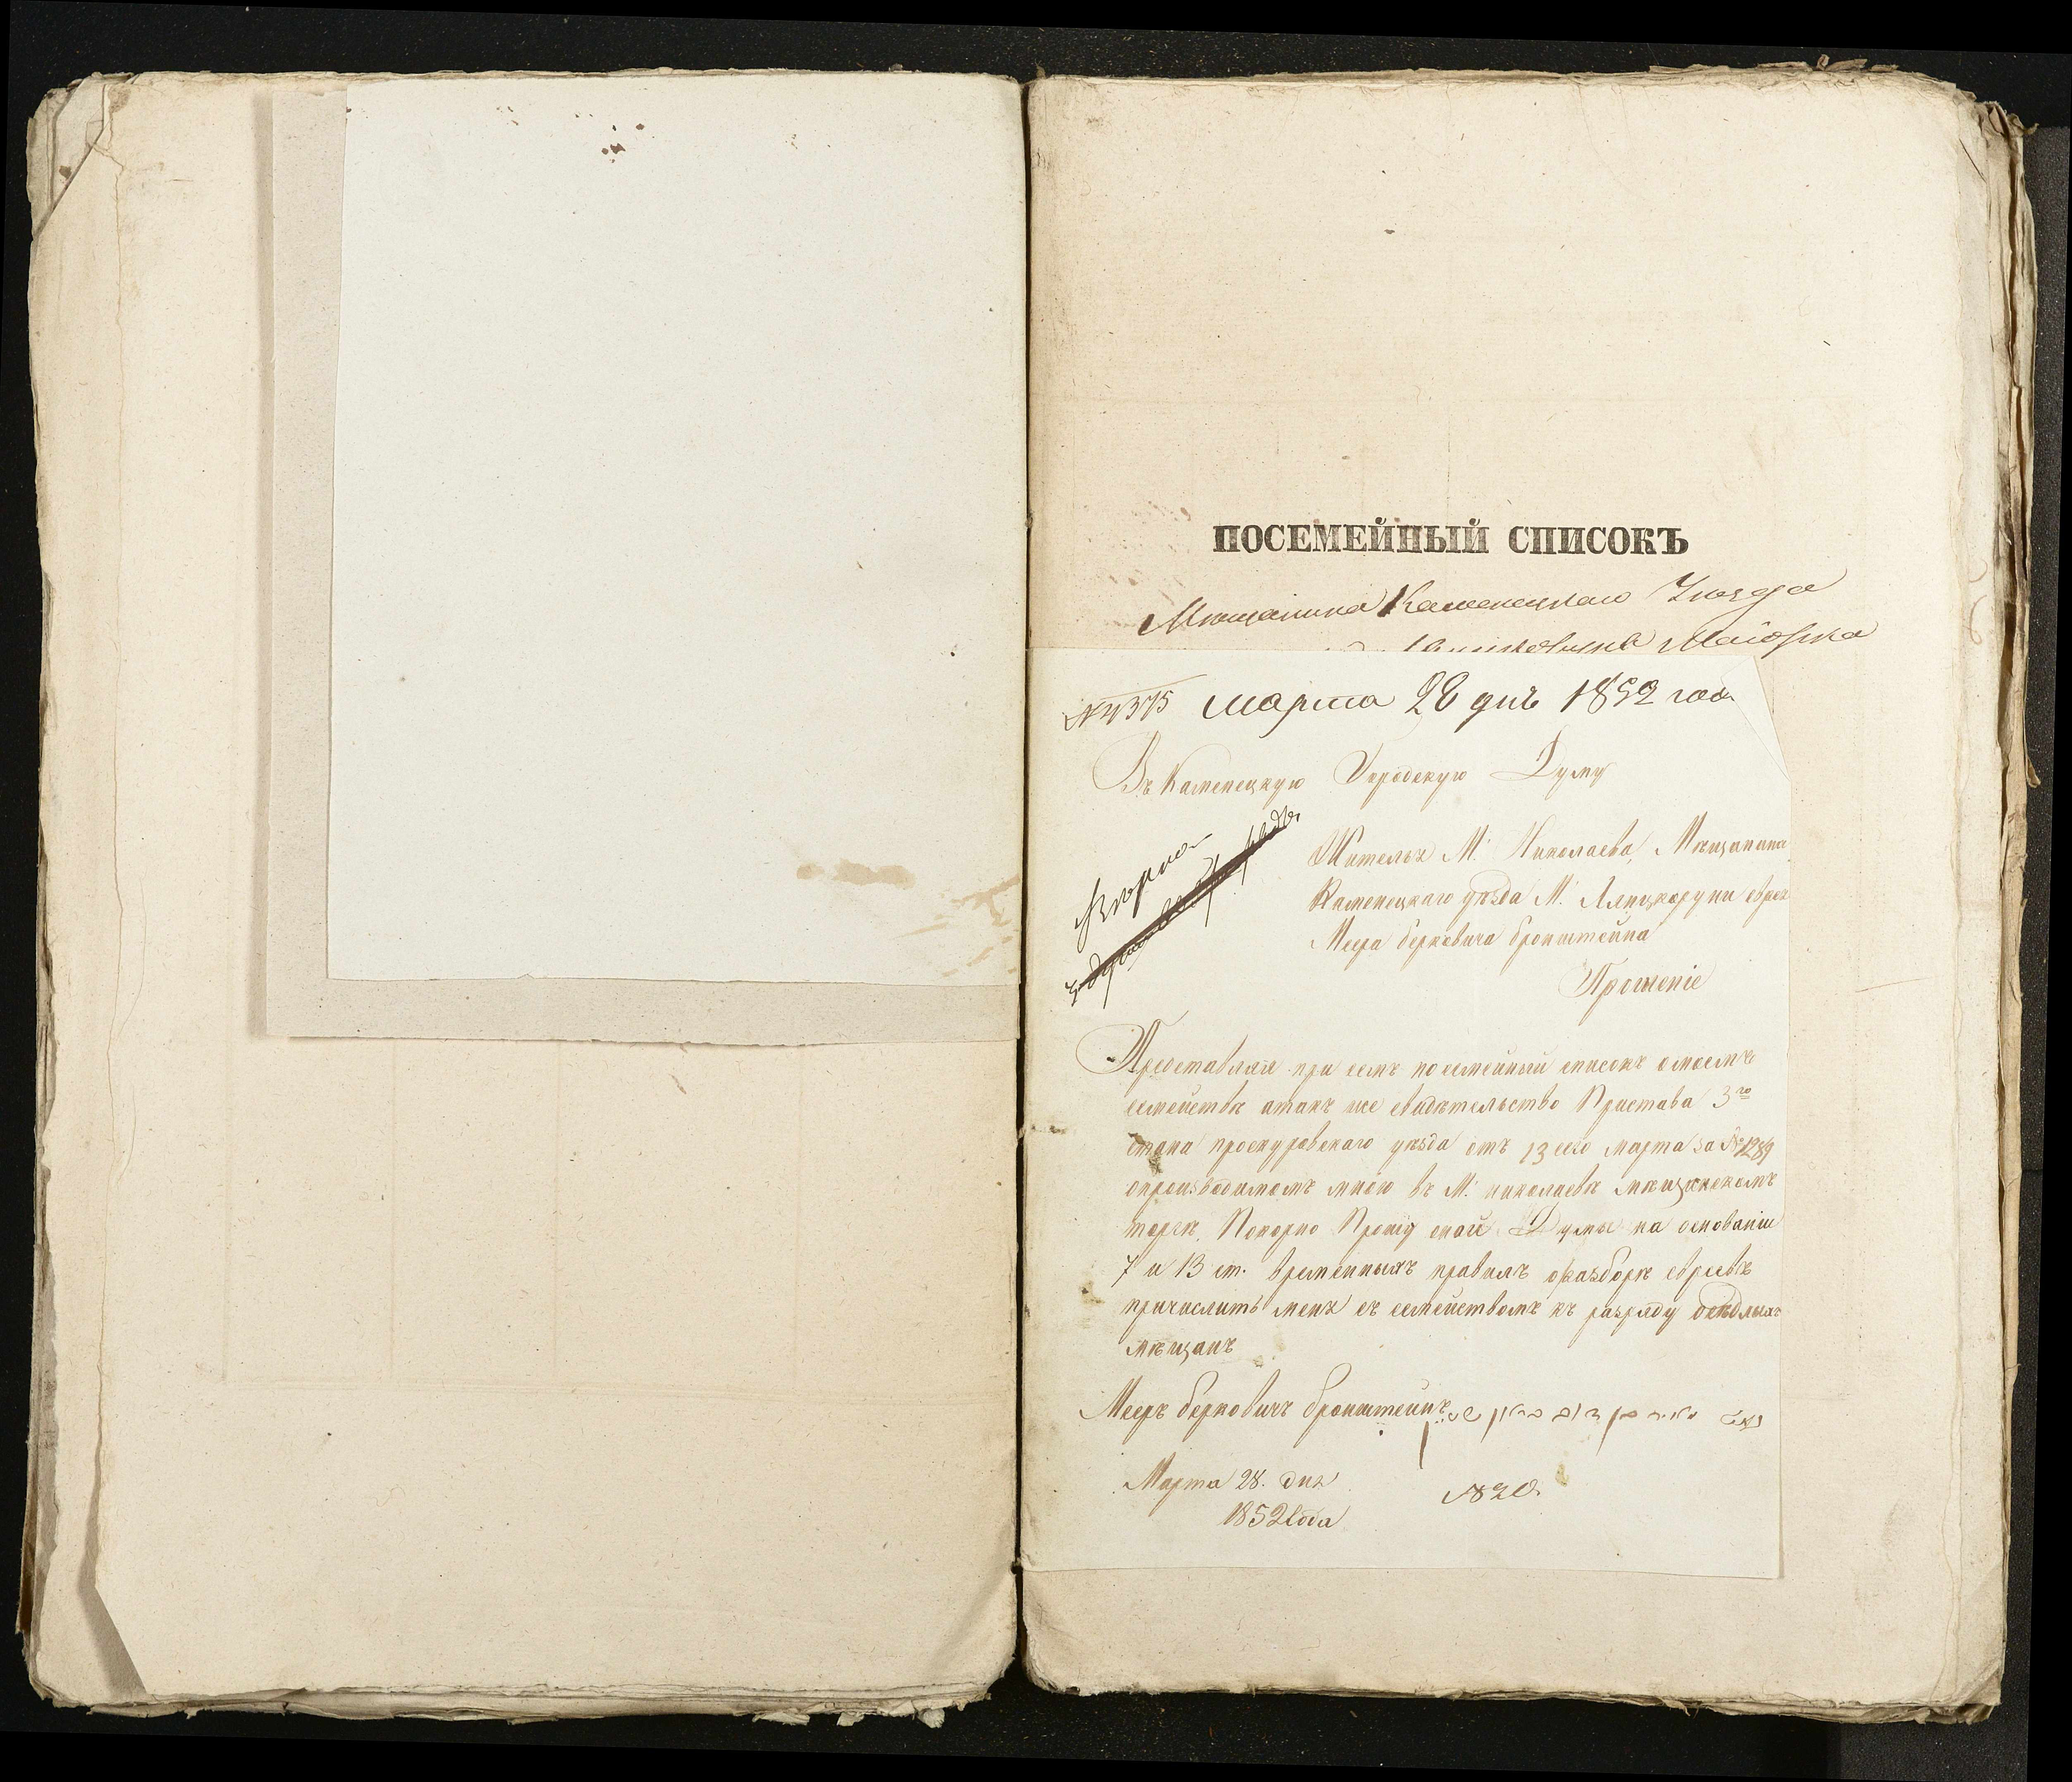 ПОСЕМЕЙНЫЙ СПИСОКЪ
Мѣщанина Каменецкаго Уѣзда
Маіорка
№ 4375 марта 28 днѣ 1852 года
Въ Каменецкую Городскую Думу
Жителя М. Николаева, Мѣщанина
Каменецкаго уѣзда М. Лянцкоруни еврея
Меера берковича бронштейна
Прошеніе
Представляя при семъ посемейный списокъ о моемъ
семействѣ а такъ же свидѣтельство Пристава 3го
стана проскуровскаго уѣзда отъ 13 сего марта за № 1289
о производимомъ мною въ М. николаевѣ мѣщанскомъ
торгѣ, Покорно Прошу оной Думы на основаніи
7 и 13 ст. временныхъ правилъ о разборѣ евреевъ
причислить меня съ семействомъ къ разряду осѣдлыхъ
мѣщанъ
Мееръ берковичъ бронштейнъ
Марта 28. дня
1852 года